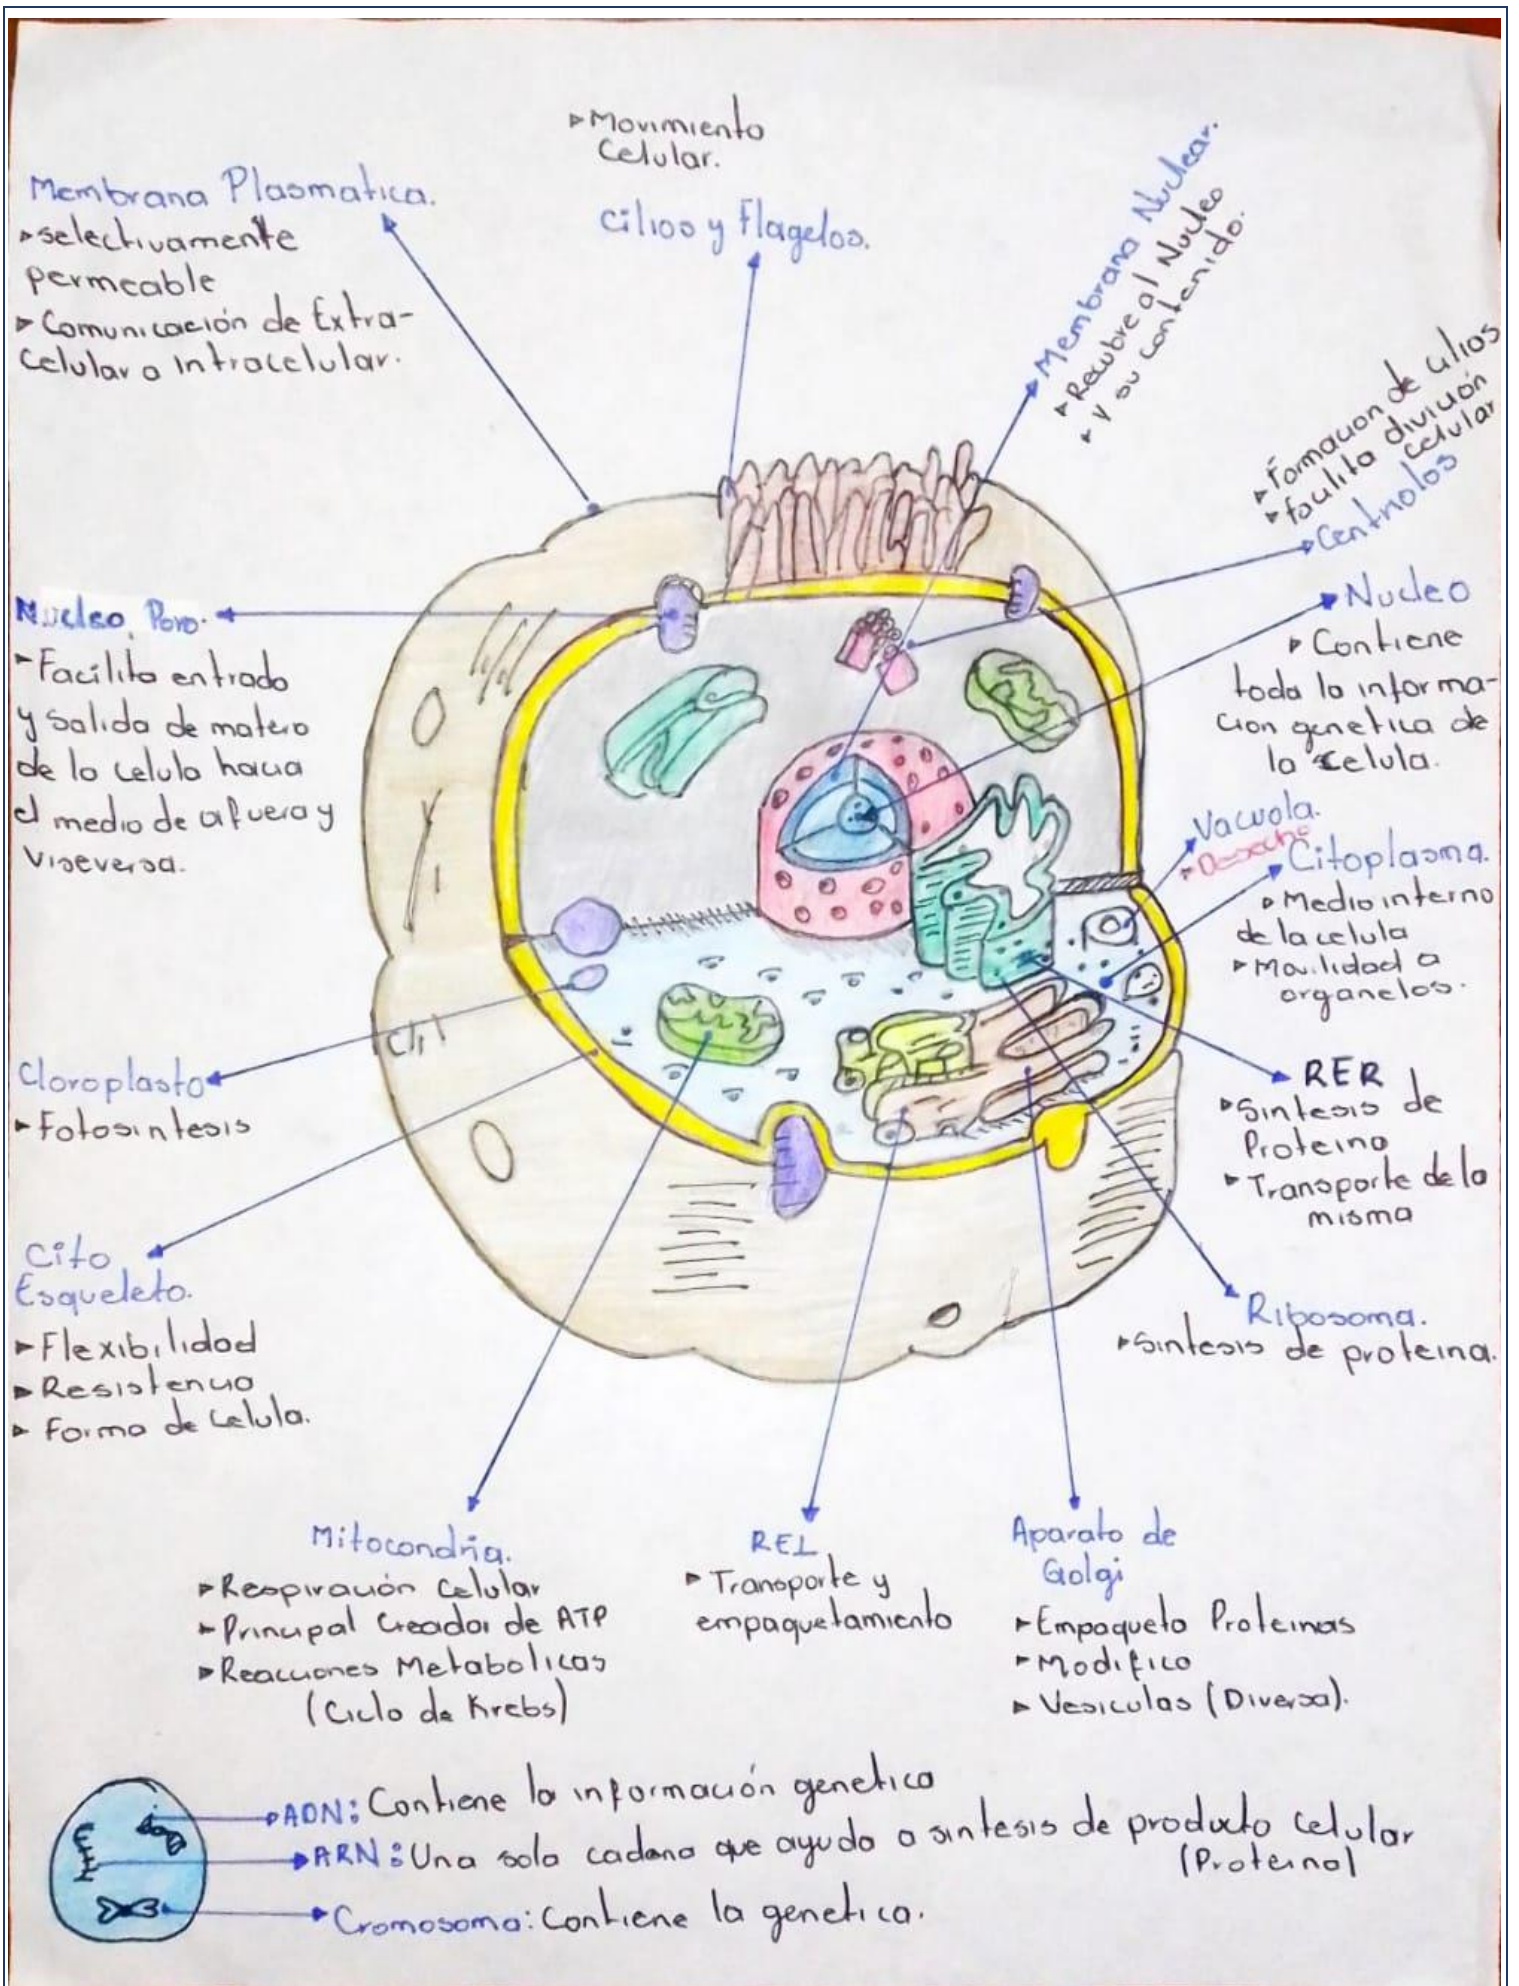 ▸Movimiento
Celular.
Cilios y Flagelos.
Membrana Plasmatica.
▸selectivamente
permeable
▸Comunicación de Extra-
Celular a Intracelular.
Membrana Nuclear.
▸Recubre al Nucleo
▸Y su contenido.
▸Formacion de cilios
▸facilita división
celular
Centriolos
Nucleo Poro.
▸Facilita entrada
y salida de materia
de la celula hacia
el medio de afuera y
Viseversa.
Nucleo
▸Contiene
toda la informa-
cion genetica de
la celula.
Vacuola.
▸Desecho
Citoplasma.
▸Medio interno
de la celula
▸Movilidad a
organelos.
Cloroplasto
▸Fotosintesis
RER
▸Sintesis de
Proteina
▸Transporte de la
misma
Cito
Esqueleto.
▸Flexibilidad
▸Resistencia
▸Forma de Celula.
Ribosoma.
▸Sintesis de proteina.
Mitocondria.
▸Respiración Celular
▸Principal Creador de ATP
▸Reacciones Metabolicas
(Ciclo de Krebs)
REL
▸Transporte y
empaquetamiento
Aparato de
Golgi
▸Empaqueta Proteinas
▸Modifica
▸Vesiculas (Diversa).
ADN: Contiene la información genetica
ARN: Una sola cadena que ayuda a sintesis de producto Celular
(Proteina)
Cromosoma: Contiene la genetica.